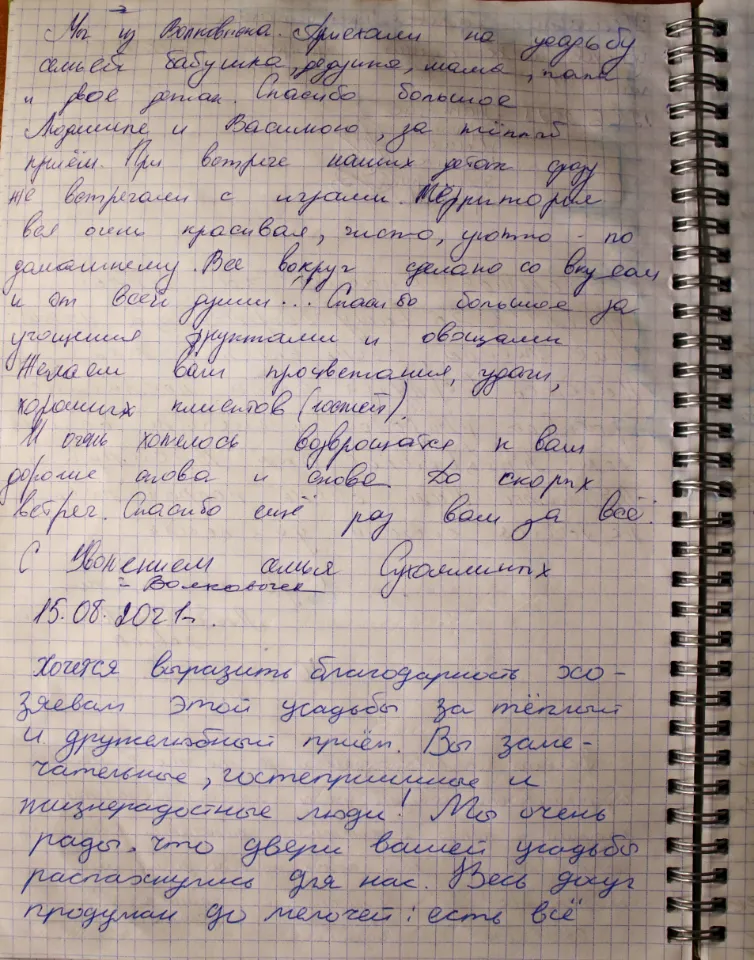 Мы из Волковыска. Приехали на усадьбу
семьёй бабушка, дедушка, мама, папа
и двое деток. Спасибо большое
Людмиле и Василию, за тёплый
приём. При встрече наших деток сразу
же встречали с играми. Территория
вся очень красивая, чисто, уютно - по
домашнему. Все вокруг сделано со вкусом
и от всей души... Спасибо большое за
угощения фруктами и овощами
Желаем вам процветания, удачи,
хороших клиентов (гостей).
И очень хотелось возвращатся к вам
дорогие снова и снова. До скорых
встреч. Спасибо ещё раз вам за всё!
С Уважением семья
г. Волковыск
15.08.2021г.
Хочется выразить благодарность хо-
зяевам этой усадьбы за тёплый
и дружелюбный приём. Вы заме-
чательные, гостеприимные и
жизнерадостные люди! Мы очень
рады, что двери вашей усадьбы
распахнулись для нас. Весь досуг
продуман до мелочей: есть всё